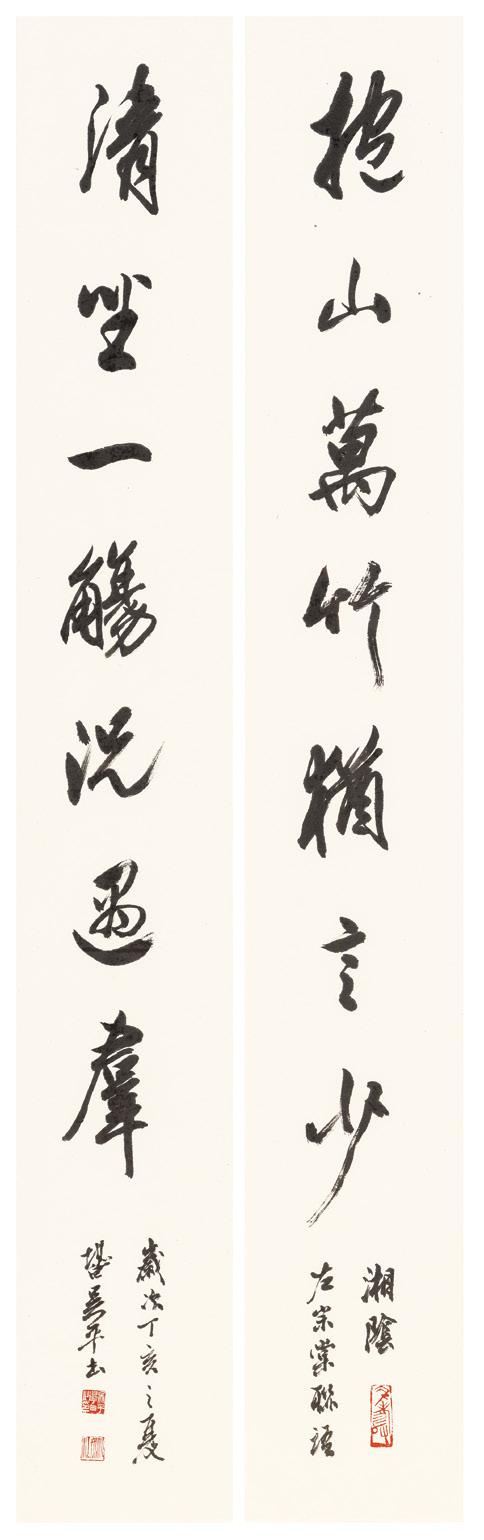 抱山萬竹猶言少
湘陰
左宗棠聯語
清坐一觴況遇羣
歲次丁亥之夏
堪白吳平書